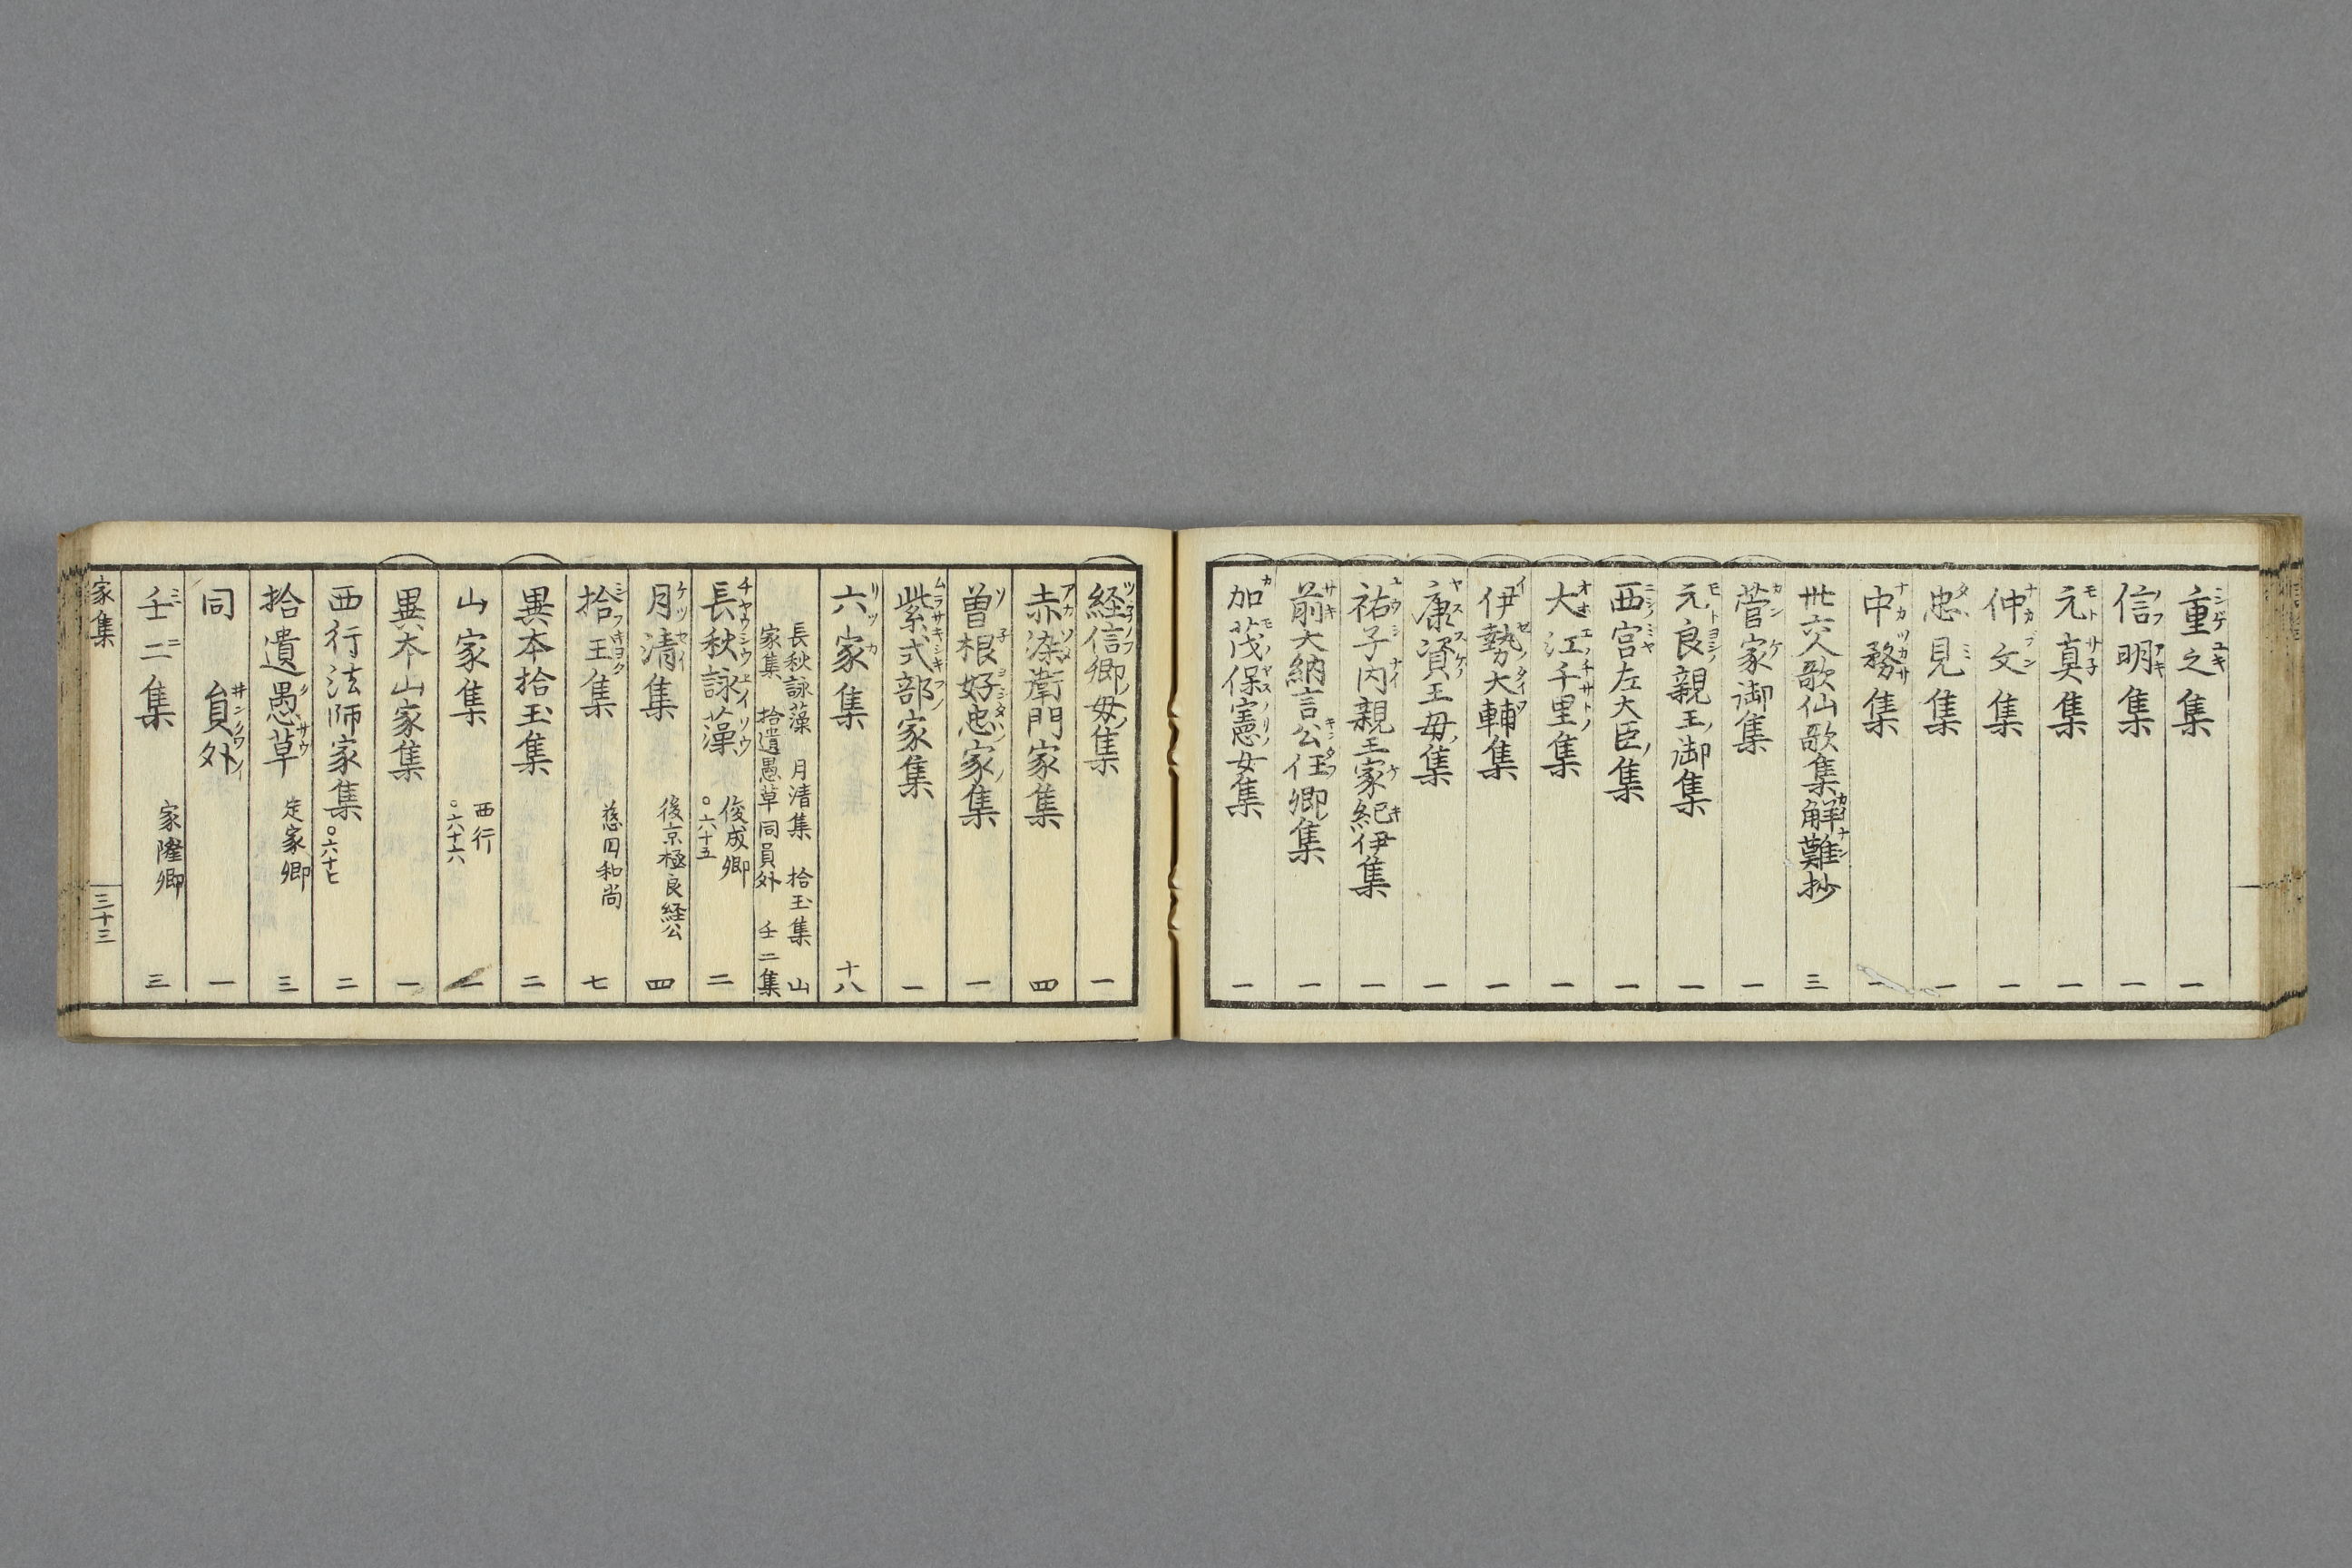 重之集 一
信明集 一
元真集 一
仲文集 一
忠見集 一
中務集 一
卅六人歌仙歌集解難抄 三
菅家御集 一
元良親王御集 一
西宮左大臣集 一
大江千里集 一
伊勢大輔集 一
康資王母集 一
祐子内親王家紀伊集 一
前大納言公任卿集 一
加茂保憲女集 一
経信卿母集 一
赤染衛門家集 四
曽根好忠家集 一
紫式部家集 一
六家集 十八
長秋詠藻 月清集 拾玉集 山
家集 拾遺愚草同員外 壬二集
長秋詠藻 俊成卿 ○六十五 二
月清集 後京極良経公 四
拾玉集 慈円和尚 七
異本拾玉集 二
山家集 西行 ○六十六
異本山家集 一
西行法師家集 ○六十七 二
拾遺愚草 定家卿 三
同 員外 一
壬二集 家隆卿 三
家集 三十三